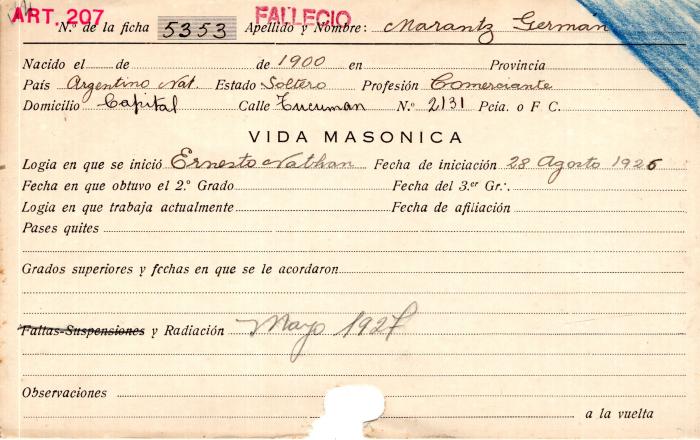 ART. 207 FALLECIO
N.º de la ficha 5353 Apellido y Nombre: Marantz Germán
Nacido el de de 1900 en Provincia
País Argentino Nat. Estado Soltero Profesión Comerciante
Domicilio Capital Calle Tucuman N.º 2131 Pcia. o F C.
VIDA MASONICA
Logia en que se inició Ernesto Nathan Fecha de iniciación 28 Agosto 1926
Fecha en que obtuvo el 2.º Grado Fecha del 3.er Gr∴
Logia en que trabaja actualmente Fecha de afiliación
Pases quites
Grados superiores y fechas en que se le acordaron
Faltas-Suspensiones y Radiación Mayo 1927
Observaciones
a la vuelta